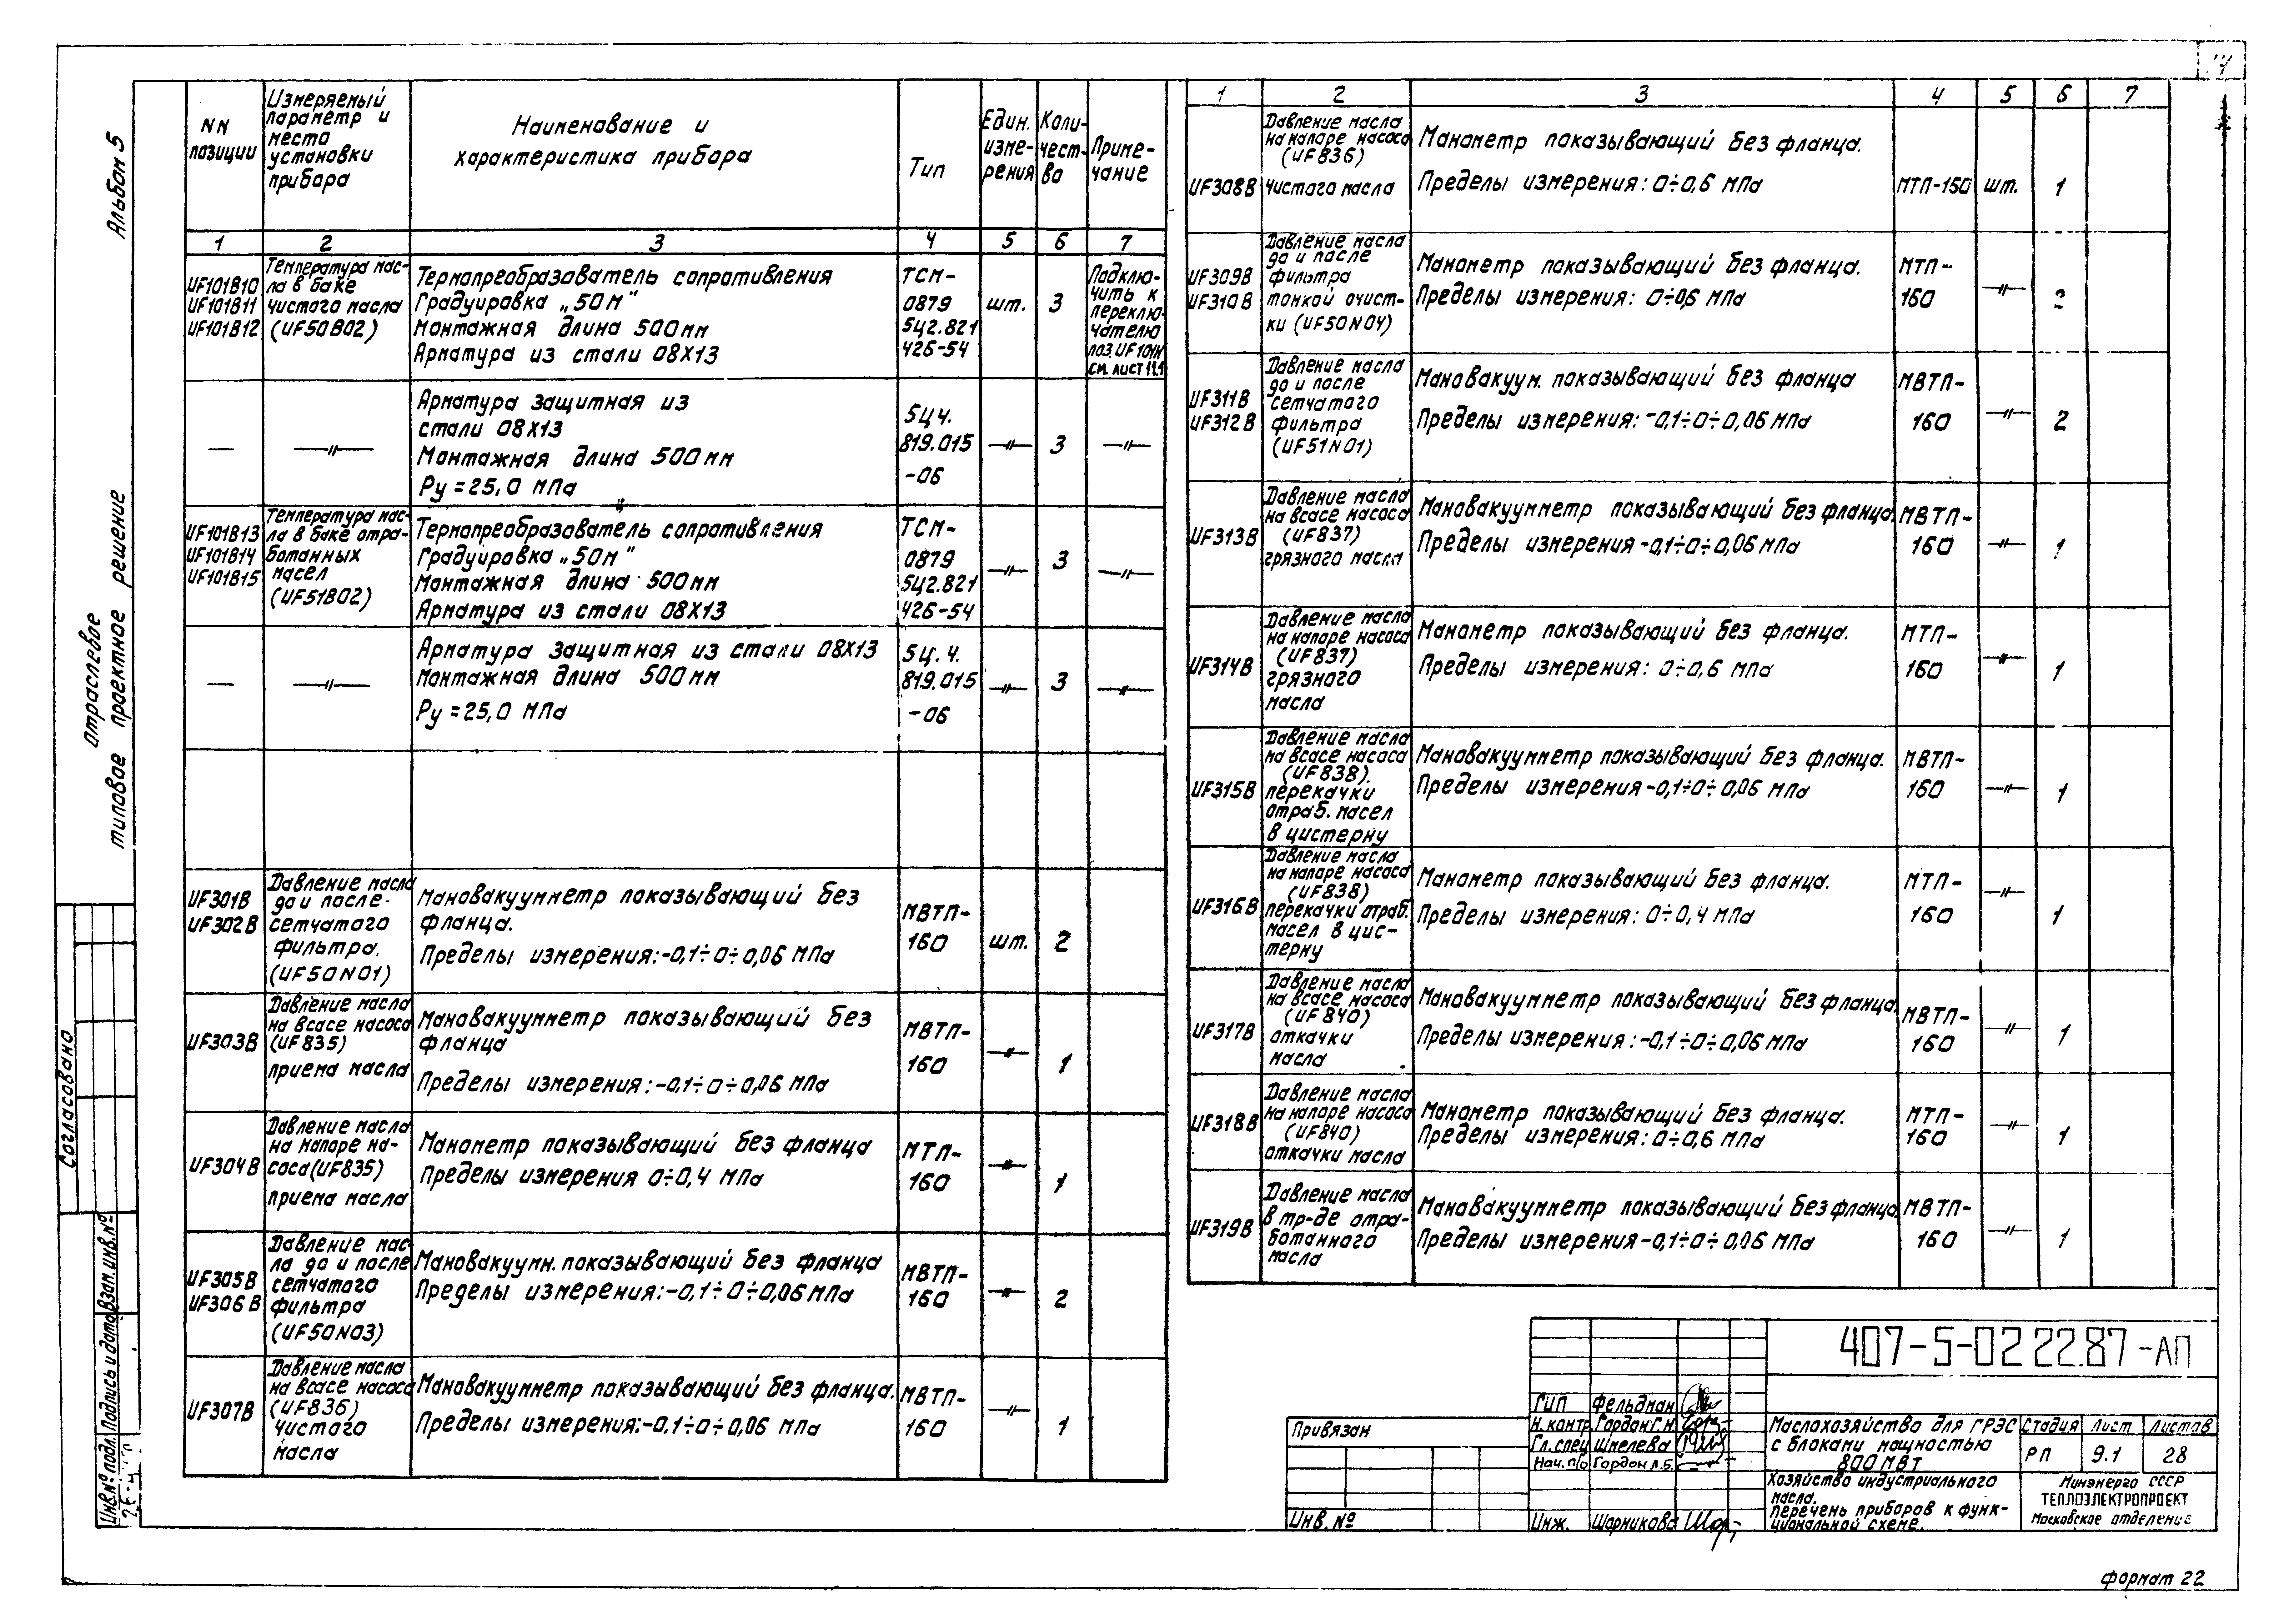 Альбом 5
Отраслевое
типовое проектное решение
Согласовано
Взам. инв. №
Подпись и дата
Инв. № подл.
NN позиции
Измеряемый параметр и место установки прибора
Наименование и характеристика прибора
Тип
Един. изме-рения
Коли-чест-во
Приме-чание
1 2 3 4 5 6 7
UF101B10
UF101B11
UF101B12
Температура мас-
ла в баке
чистого масла
(UF50B02)
Термопреобразователь сопротивления
Градуировка „50М"
Монтажная длина 500мм
Арматура из стали 08Х13
ТСМ-
0879
5Ц2.821
426-54
шт.
3
Подклю-
чить к
переклю-
чателю
поз. UF101H
см. лист 11.1
—
—〃—
Арматура защитная из
стали 08Х13
Монтажная длина 500мм
Ру = 25,0 МПа
5Ц4.
819.015
-06
—〃—
3
—〃—
UF101B13
UF101B14
UF101B15
Температура мас-
ла в баке отра-
ботанных
масел
(UF51B02)
Термопреобразователь сопротивления
Градуировка „50М"
Монтажная длина 500мм
Арматура из стали 08Х13
ТСМ-
0879
5Ц2.821
426-54
—〃—
3
—〃—
—
—〃—
Арматура защитная из стали 08Х13
Монтажная длина 500мм
Ру = 25,0 МПа
5Ц.4.
819.015
-06
—〃—
3
—〃—
UF301B
UF302B
Давление масла
до и после
сетчатого
фильтра.
(UF50N01)
Мановакуумметр показывающий без
фланца.
Пределы измерения:-0,1÷0÷0,06 МПа
МВТП-
160
шт.
2
UF303B
Давление масла
на всасе насоса
(UF835)
приема масла
Мановакуумметр показывающий без
фланца
Пределы измерения:-0,1÷0÷0,06 МПа
МВТП-
160
—〃—
1
UF304B
Давление масла
на напоре на-
соса(UF835)
приема масла
Манометр показывающий без фланца
Пределы измерения 0÷0,4 МПа
МТП-
160
—〃—
1
UF305B
UF306B
Давление мас-
ла до и после
сетчатого
фильтра
(UF50N03)
Мановакуумн. показывающий без фланца
Пределы измерения:-0,1÷0÷0,06МПа
МВТП-
160
—〃—
2
UF307B
Давление масла
на всасе насоса
(UF836)
чистого
масла
Мановакуумметр показывающий без фланца.
Пределы измерения:-0,1÷0÷0,06 МПа
МВТП-
160
—〃—
1
1 2 3 4 5 6 7
UF308B
Давление масла
на напоре насоса
(UF836)
чистого масла
Манометр показывающий без фланца.
Пределы измерения: 0÷0,6 МПа
МТП-150
шт.
1
UF309B
UF310B
Давление масла
до и после
фильтра
тонкой очист-
ки (UF50N04)
Манометр показывающий без фланца.
Пределы измерения: 0÷0,6 МПа
МТП-
160
—〃—
UF311B
UF312B
Давление масла
до и после
сетчатого
фильтра
(UF51N01)
Мановакуум. показывающий без фланца
Пределы измерения: -0,1÷0÷0,06 МПа
МВТП-
160
—〃—
2
UF313B
Давление масла
на всасе насоса
(UF837)
грязного масла
Мановакуумметр показывающий без фланца.
Пределы измерения -0,1÷0÷0,06 МПа
МВТП-
160
—〃—
1
UF314B
Давление масла
на напоре насоса
(UF837)
грязного
масла
Манометр показывающий без фланца.
Пределы измерения: 0÷0,6 МПа
МТП-
160
—〃—
1
UF315B
Давление масла
на всасе насоса
(UF838).
перекачки
отраб. масел
в цистерну
Мановакуумметр показывающий без фланца.
Пределы измерения -0,1÷0÷0,06 МПа
МВТП-
160
—〃—
1
UF316B
Давление масла
на напоре насоса
(UF838)
перекачки отраб.
масел в цис-
терну
Манометр показывающий без фланца.
Пределы измерения: 0÷0,4 МПа
МТП-
160
—〃—
1
UF317B
Давление масла
на всасе насоса
(UF840)
откачки
масла
Мановакуумметр показывающий без фланца.
Пределы измерения:-0,1÷0÷0,06 МПа
МВТП-
160
—〃—
1
UF318B
Давление масла
на напоре насоса
(UF840)
откачки масла
Манометр показывающий без фланца.
Пределы измерения: 0÷0,6 МПа
МТП-
160
—〃—
1
UF319B
Давление масла
в тр-де отра-
ботанного
масла
Мановакуумметр показывающий без фланца.
Пределы измерения -0,1÷0÷0,06 МПа
МВТП-
160
—〃—
1
407-5-022 22.87-АП
ГИП Фельдман
Н. контр. Гордон Г.Н.
Гл. спец Шмелева
Нач. п/о Гордон Л.Б.
Инж. Шорникова
Привязан
Инв. №
Маслохозяйство для ГРЭС
с блоками мощностью
800 МВт
Стадия Лист Листов
РП 9.1 28
Хозяйство индустриального
масла.
Перечень приборов к функ-
циональной схеме.
Минэнерго СССР
ТЕПЛОЭЛЕКТРОПРОЕКТ
Московское отделение
Формат 22